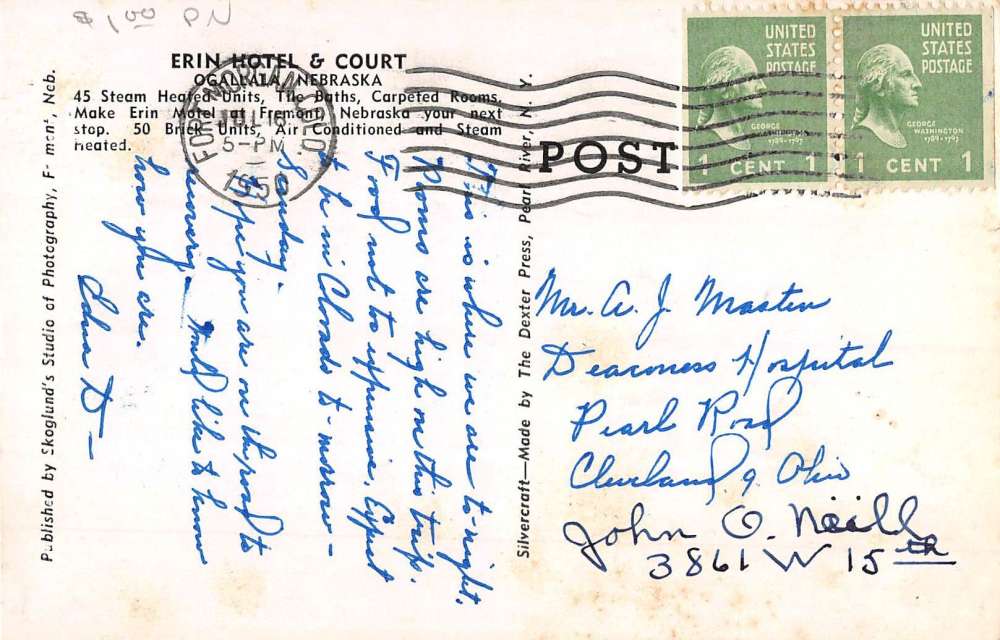 $1.00 PN
ERIN HOTEL & COURT
OGALLALA, NEBRASKA
45 Steam Heated Units, Tile Baths, Carpeted Rooms.
Make Erin Motel at Fremont, Nebraska your next
stop. 50 Brick Units, Air Conditioned and Steam
Heated.
FORT MORGAN, COLO.
5-PM
1950
UNITED
STATES
POSTAGE
GEORGE
WASHINGTON
1789-1797
1 CENT 1
UNITED
STATES
POSTAGE
GEORGE
WASHINGTON
1789-1797
1 CENT 1
POST
Published by Skoglund's Studio of Photography, Fremont, Neb.
This is where we are to-night.
Rooms are high on this trip.
Food not to expensive. Expect
to be in Colorado to-morrow -
Sunday.
Hope you are on the road to
recovery. Would like to know
how you are.
Edna D -
Silvercraft—Made by The Dexter Press, Pearl River, N. Y.
Mr. A. J. Masten
Deaconess Hospital
Pearl Road
Cleveland 9. Ohio
John O. Neill
3861 W 15th